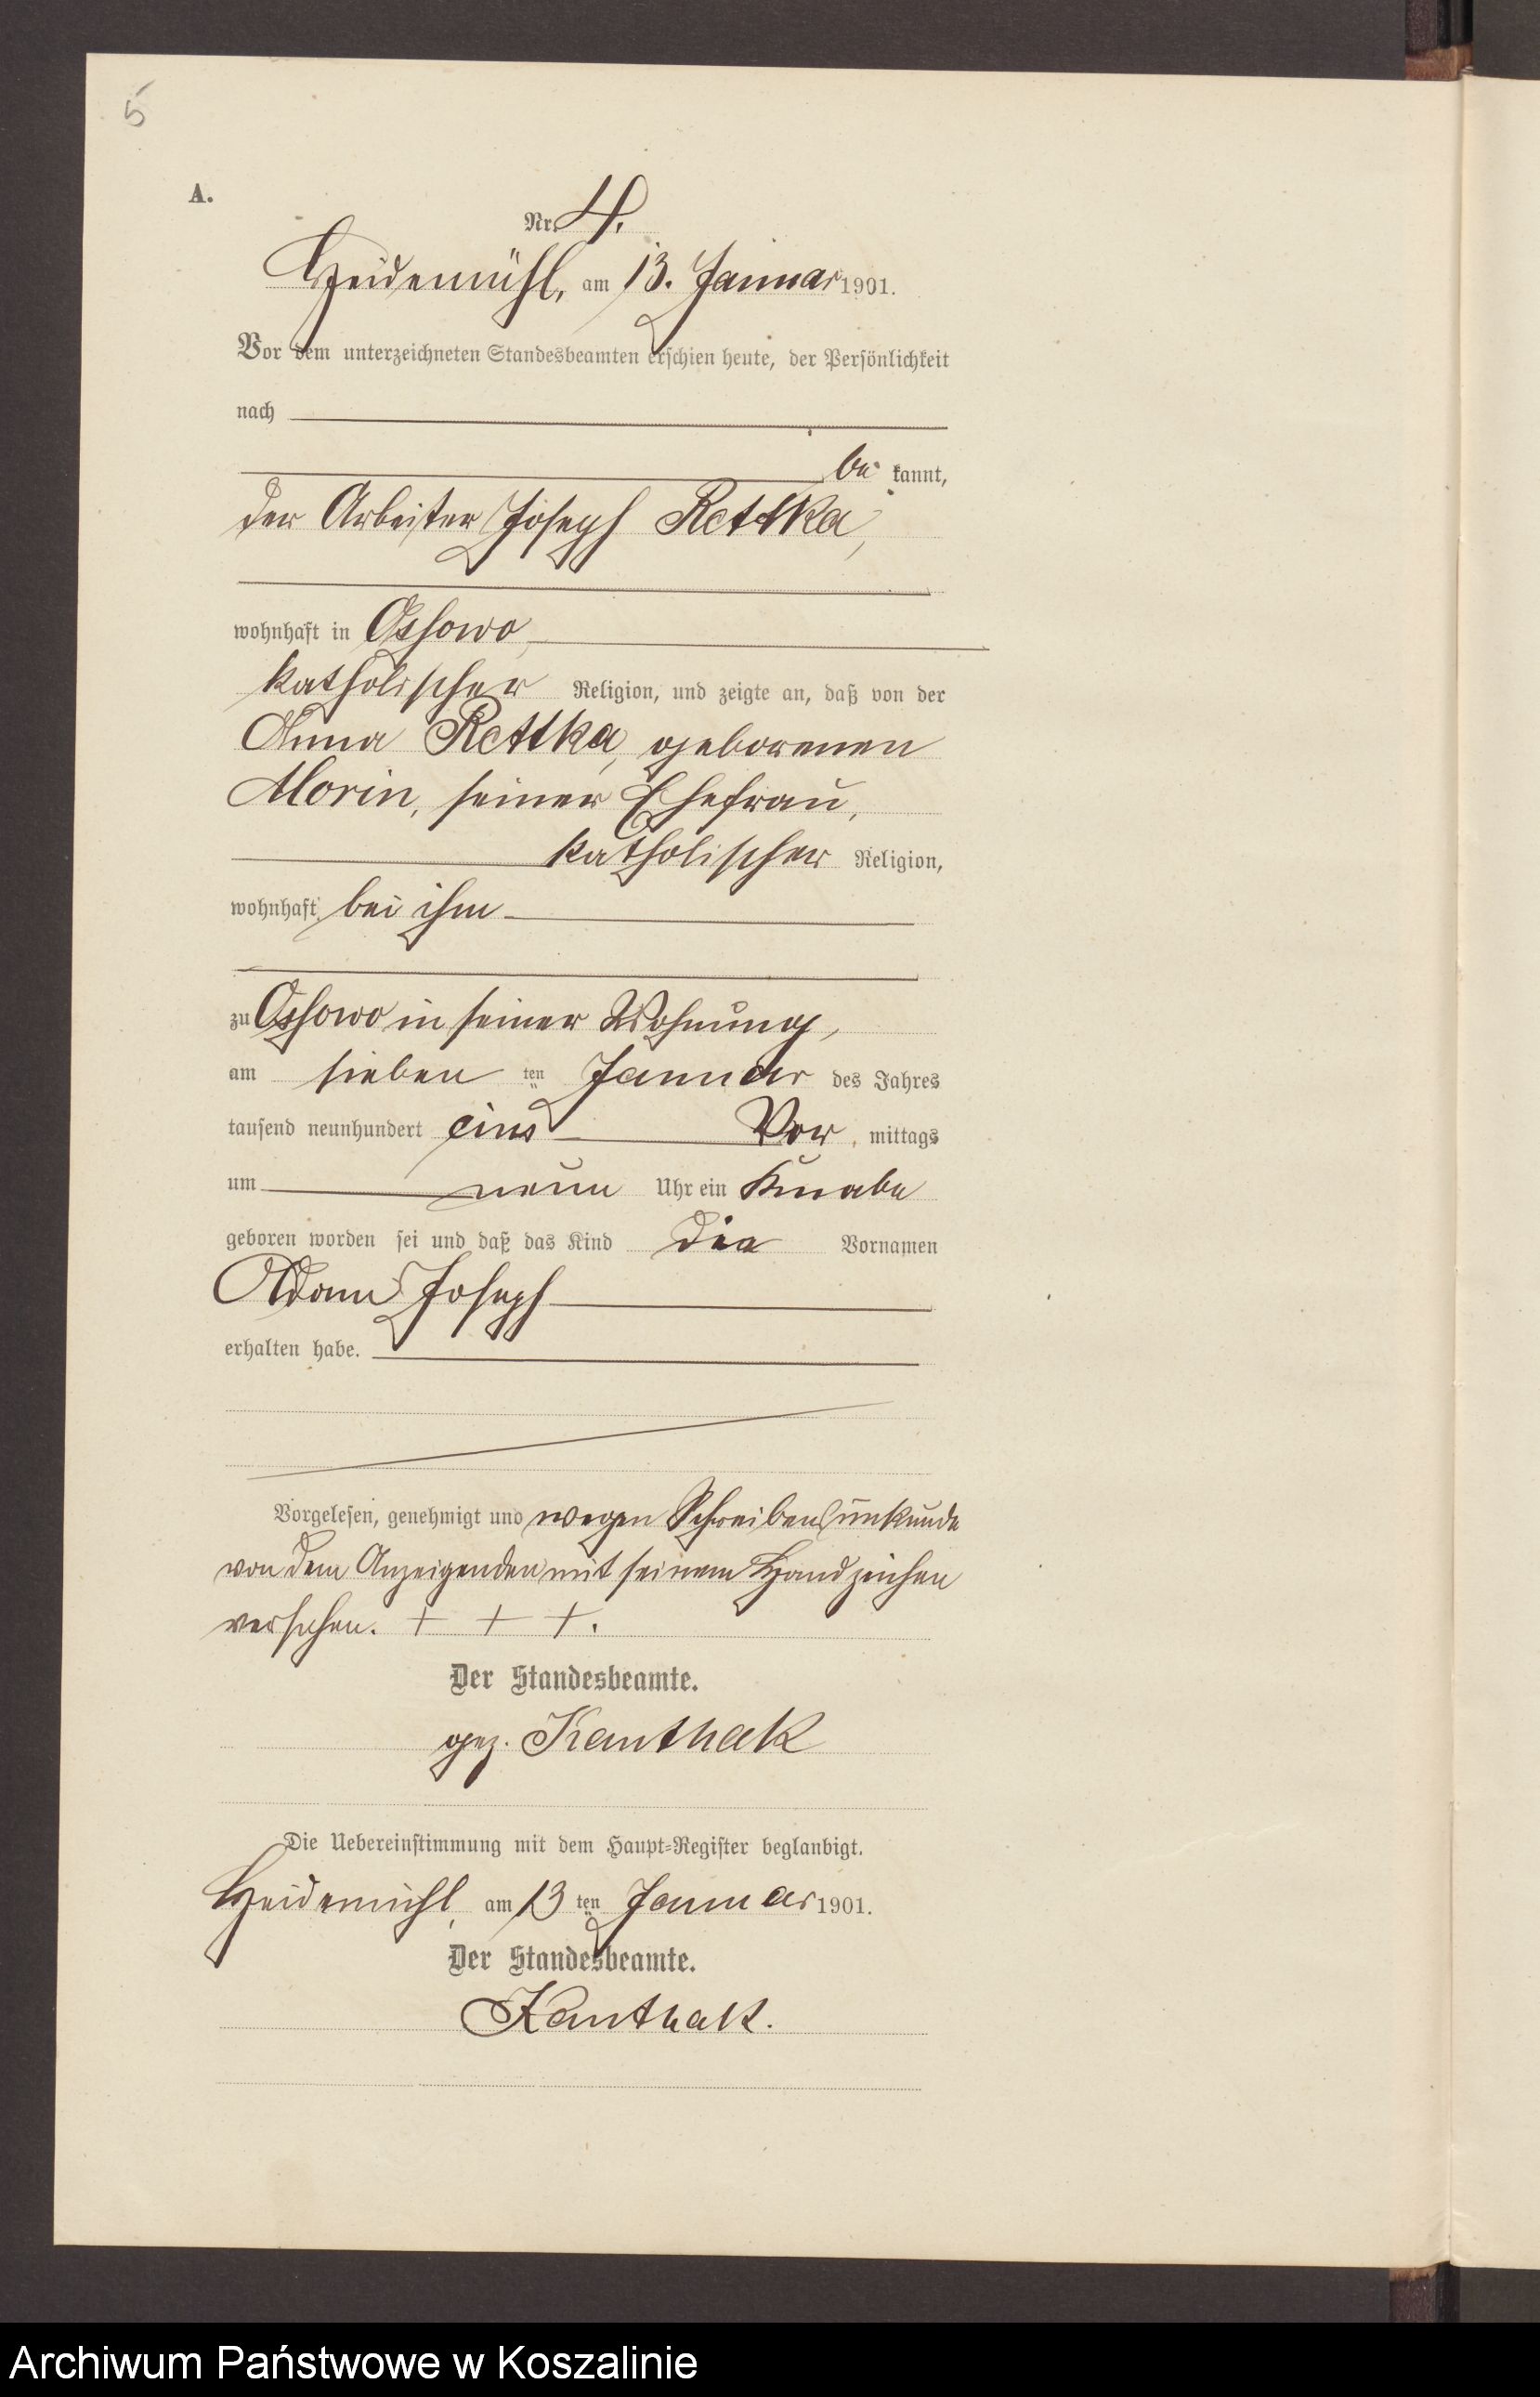 5
A.
Nr. 4.
Heidemühl, am 13. Januar 1901.
Vor dem unterzeichneten Standesbeamten erschien heute, der Persönlichkeit
nach
be kannt,
der Arbeiter Joseph Rettka,
wohnhaft in Ossowo,
katholischer Religion, und zeigte an, daß von der
Anna Rettka, geborenen
Morin, seiner Ehefrau,
katholischer Religion,
wohnhaft bei ihm
zu Ossowo in seiner Wohnung,
am sieben ten Januar des Jahres
tausend neunhundert eins Vor mittags
um neun Uhr ein Knabe
geboren worden sei und daß das Kind die Vornamen
Adam Joseph
erhalten habe.
Vorgelesen, genehmigt und wegen Schreibensunkunde
von dem Anzeigenden mit seinem Handzeichen
versehen. + + +.
Der Standesbeamte.
gez. Kanthak
Die Uebereinstimmung mit dem Haupt-Register beglaubigt.
Heidemühl, am 13 ten Januar 1901.
Der Standesbeamte.
Kanthak.
Archiwum Państwowe w Koszalinie